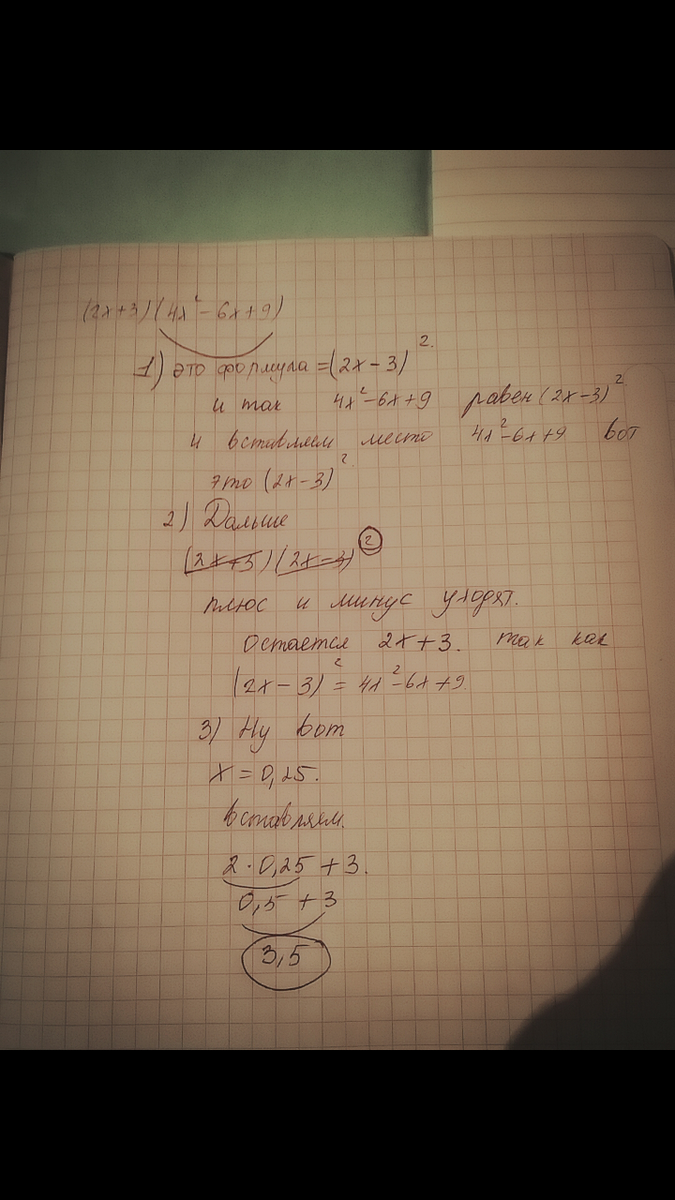 (2x+3)(4x²-6x+9)
1) это формула =(2x-3)².
и так 4x²-6x+9 равен (2x-3)²
и вставляем место 4x²-6x+9 вот
это (2x-3)²
2) Дальше
(2x+3)(2x-3)²
плюс и минус уходят.
Остается 2x+3. так как
(2x-3)²=4x²-6x+9.
3) Ну вот
x=0,25.
вставляем.
2·0,25+3.
0,5+3
3,5